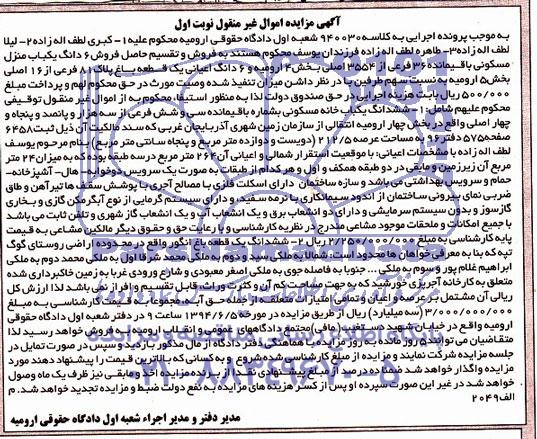 آگهی مزایده اموال غیر منقول نوبت اول
به موجب پرونده اجرایی به کلاسه ۹۴۰۰۳۰ شعبه اول دادگاه حقوقی ارومیه محکوم علیه ۱- کبری لطف اله زاده ۲- لیلا
لطف اله زاده ۳- طاهره لطف اله زاده فرزندان یوسف محکوم هستند به فروش و تقسیم حاصل فروش ۶ دانگ یکباب منزل
مسکونی باقیمانده ۳۶ فرعی از ۳۵۵۴ اصلی بخش ۴ ارومیه و ۶ دانگ اعیانی یک قطعه باغ پلاک ۸۰ فرعی از ۱۶ اصلی
بخش ۵ ارومیه به نسبت سهم طرفین با در نظر داشتن میزان تنفیذ شده وصیت مورث در حق محکوم لهم و پرداخت مبلغ
۵۰۰/۰۰۰ ریال بابت هزینه اجرایی در حق صندوق دولت لذا به منظور استیفاء محکوم به از اموال غیر منقول توقیفی
محکوم علیهم شامل ۱- ششدانگ یکباب خانه مسکونی بشماره باقیمانده سی و شش فرعی از سه هزار و پانصد و پنجاه و
چهار اصلی واقع در بخش چهار ارومیه انتقالی از سازمان زمین شهری آذربایجان غربی که سند مالکیت آن ذیل ثبت ۶۴۵۸
صفحه ۵۷۵ دفتر ۹۶ به مساحت عرصه ۲۱۲/۵ (دویست و دوازده متر مربع و پنجاه سانتی متر مربع) بنام مرحوم یوسف
لطف اله زاده با مشخصات اعیانی: با موقعیت استقرار شمالی و اعیانی آن ۲۶۰ متر مربع در سه طبقه بوده که به میزان ۲۴ متر
مربع آن زیرزمین و مابقی در دو طبقه همکف و اول و هر کدام از طبقات به صورت یک سرویس دوخوابه- هال- آشپزخانه-
حمام و سرویس بهداشتی می باشد و سازه ساختمان دارای اسکلت فلزی با مصالح آجری با پوشش سقف ها تیرآهن و طاق
ضربی نمای بیرونی ساختمان از اندود سیمانکاری با نرمه سفید و دارای سیستم گرمایی از نوع آبگرمکن گازی و بخاری
گازسوز و بدون سیستم سرمایشی و دارای دو انشعاب برق و یک انشعاب آب و یک انشعاب گاز شهری و تلفن ثابت می باشد
با جمیع امکانات و ملحقات موجود مشاعی مندرج در نظریه کارشناسی و رعایت حق و حقوق دیگر مالکین مشاعی به قیمت
پایه کارشناسی به مبلغ ۲/۲۵۰/۰۰۰/۰۰۰ ریال ۲- ششدانگ یک قطعه باغ انگور واقع در محدوده اراضی روستای گوگ
تپه که بنا به معرفی خواهان ها محدود است شمالا به ملکی سید و دوم به ملکی محمد شرقا اول به ملکی محمد دوم به ملکی
ابراهیم غلام پور و سوم به ملکی ... جنوبا به فاصله جوی به ملکی اصغر معبودی و شارع ورودی غربا به زمین خاکبرداری شده
متعلق به کارخانه آجرپزی خورشید که به جهت مساحت کم آن و کثرت وراث، قابل تقسیم و افراز نمی باشد لذا ارزش کل
ریالی آن مشتمل بر عرصه و اعیان و تمامی امتیازات متعلقه از جمله حق آبه جمعا به قیمت کارشناسی به مبلغ
۳/۰۰۰/۰۰۰/۰۰۰ (سه میلیارد) ریال از طریق مزایده در مورخه ۱۳۹۴/۶/۵ ساعت ۹ در دفتر شعبه اول دادگاه حقوقی
ارومیه واقع در خیابان شهید دستغیب (مافی) مجتمع دادگاههای عمومی و انقلاب ارومیه به فروش خواهد رسید لذا
متقاضیان می توانند ۵ روز مانده به روز مزایده با هماهنگی دفتر دادگاه از مال مذکور بازدید و سپس در صورت تمایل در
جلسه مزایده شرکت نمایند و مزایده از مبلغ کارشناسی شده شروع و به کسانی که بالاترین قیمت را پیشنهاد دهند مورد
مزایده واگذار خواهد شد ضمنا ده درصد از مبلغ پیشنهادی نقدا از برنده مزایده اخذ و مابقی نیز ظرف یک ماه وصول
خواهد شد در غیر این صورت سپرده او پس از کسر هزینه های مزایده به نفع دولت ضبط و مزایده تجدید خواهد شد. م
الف ۲۰۴۹
مدیر دفتر و مدیر اجراء شعبه اول دادگاه حقوقی ارومیه